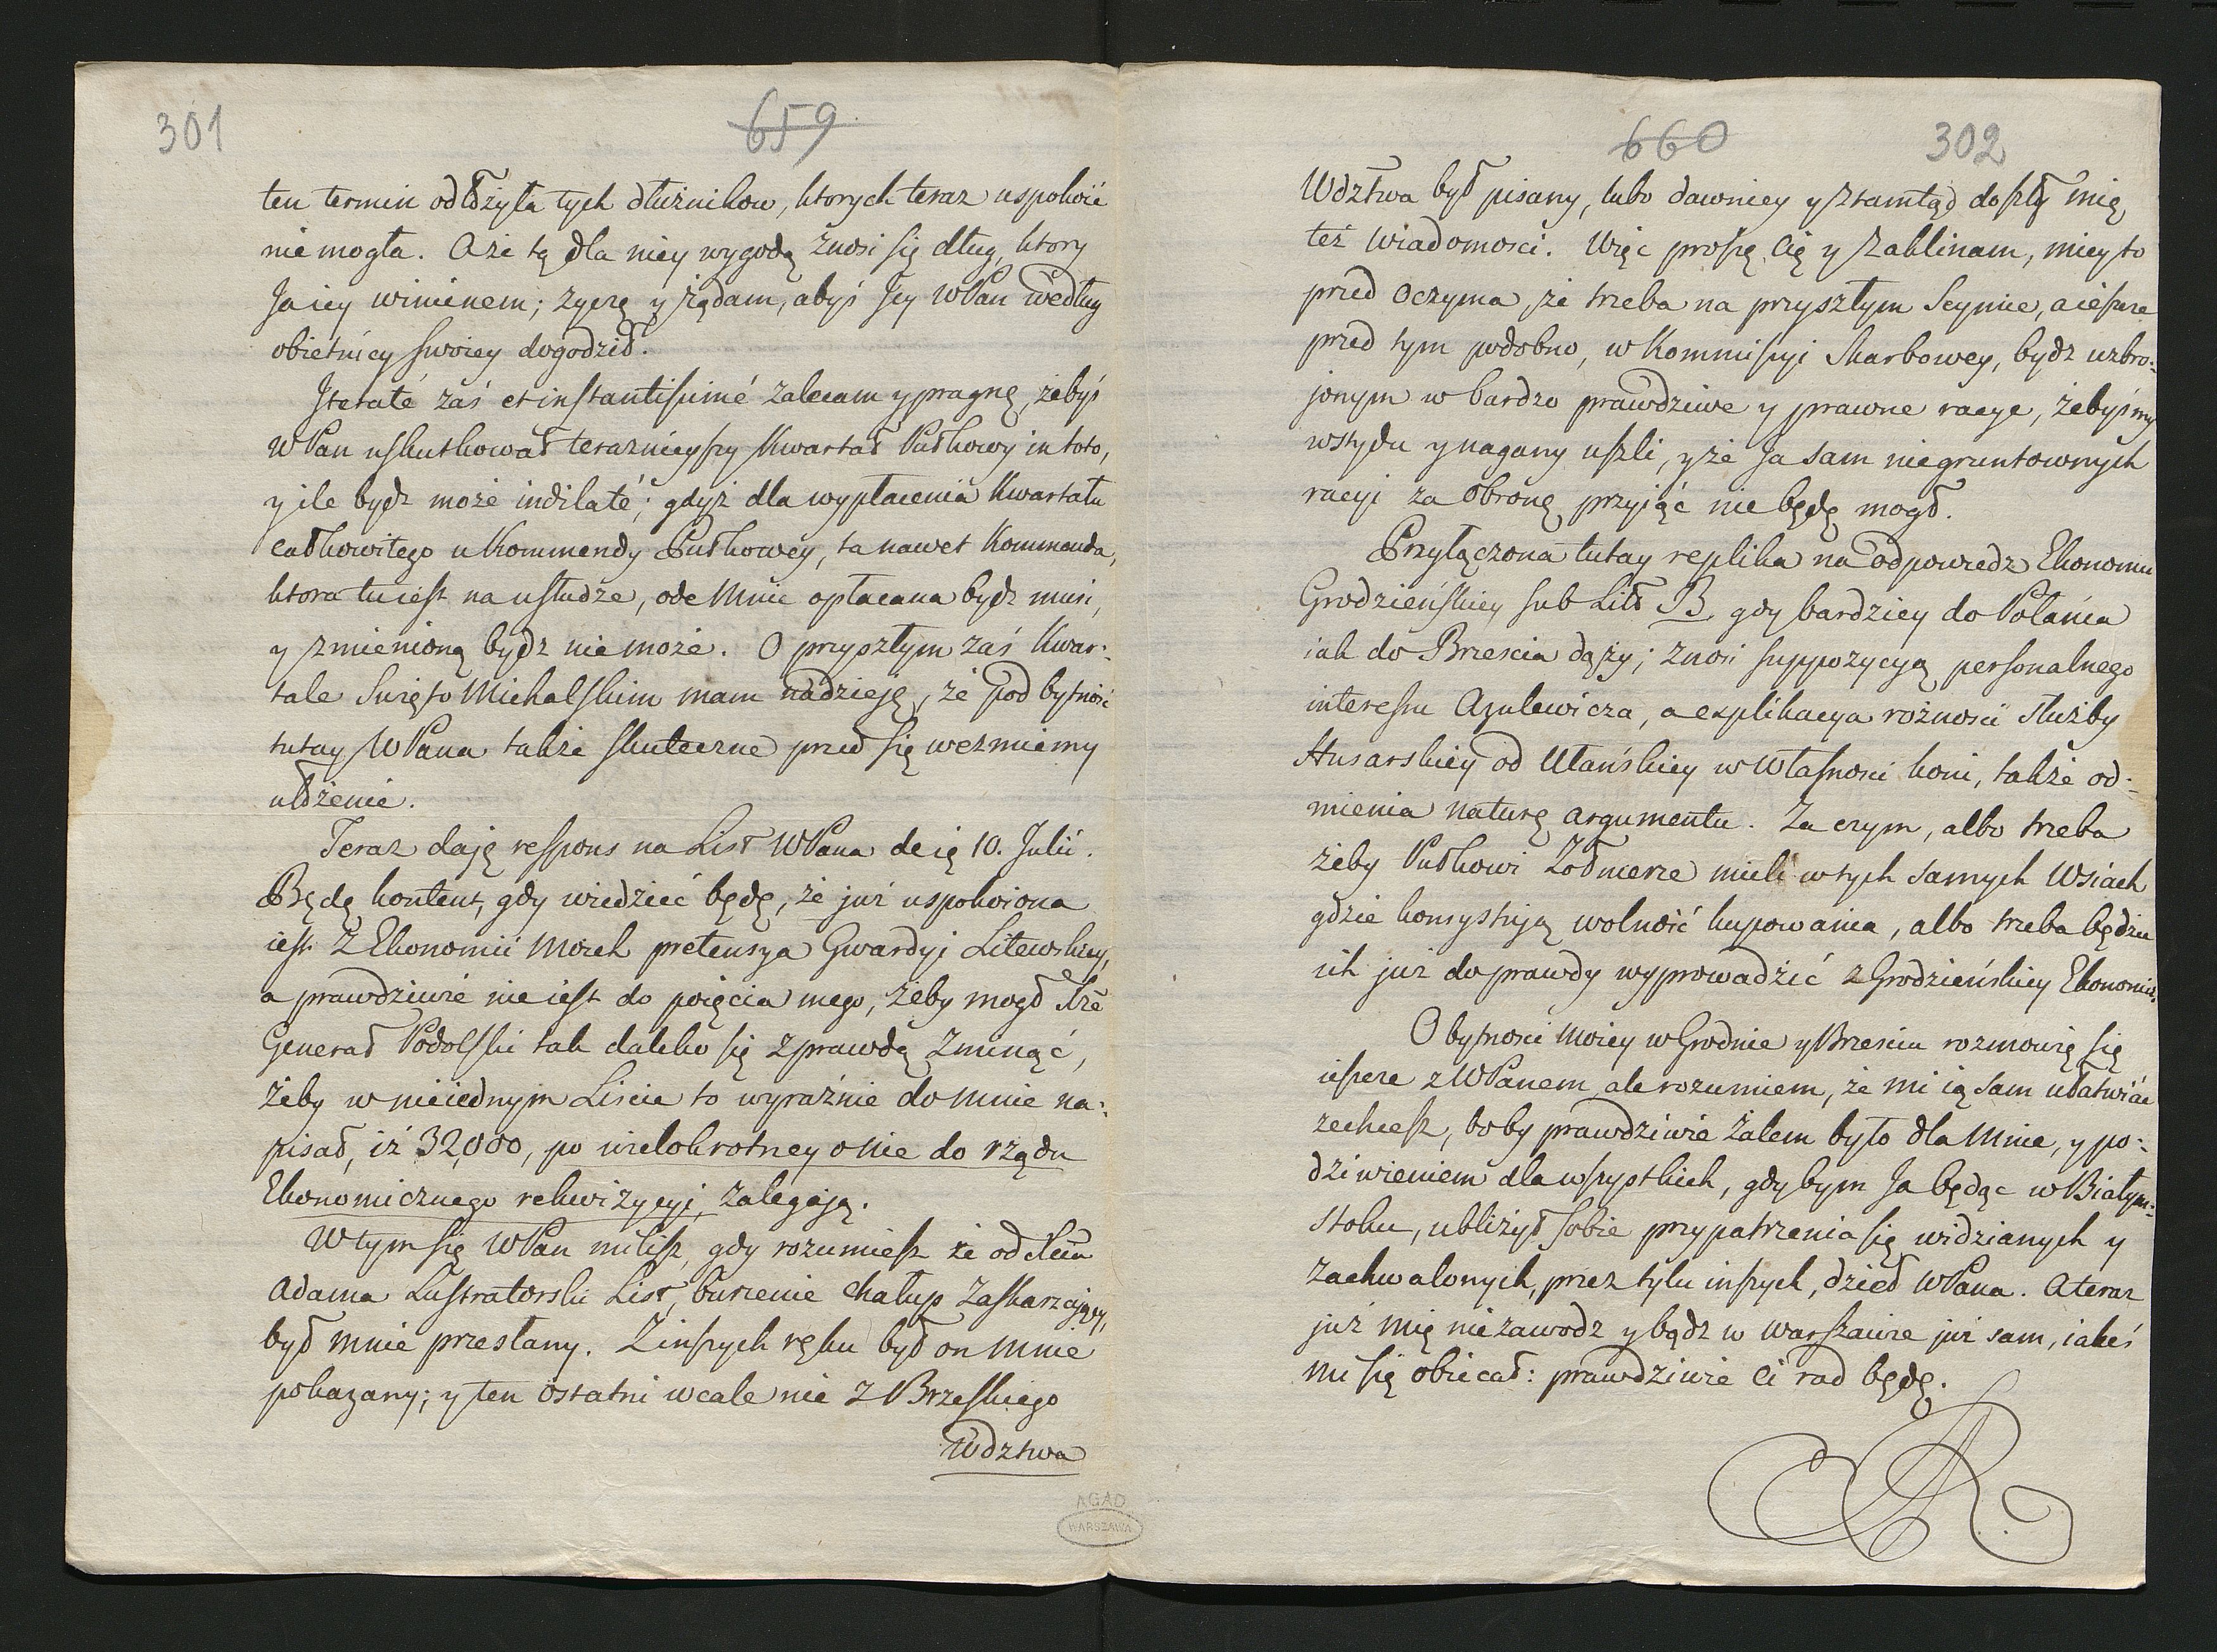 301
659
ten termin odłożyła tych dłużnikow, ktorych teraz uspokoić
nie mogła. A że tą dla niey wygodą znosi się dług, ktory
Ja iey winienem; życzę y żądam, abyś Jey WPan według
obietnicy swoiey dogodził.
Iteraté zaś et instantissimé zalecam y pragnę, żebyś
WPan uskutkował teraznieyszy Kwartał Pułkowy in toto,
y ile bydz może indilaté; gdyż dla wypłacenia Kwartału
całkowitego u Kommendy Pułkowey, ta nawet Kommenda,
ktora tu iest na usłudze, odemnie opłacana bydz musi,
y zmienioną bydz nie może. O przyszłym zaś Kwar:
tale Swięto Michalskim mam nadzieję, że pod bytność
tutay WPana także skuteczne przed się wezmiemy
ułożenie.
Teraz daję respons na List WPana de 10. Julii.
Będę kontent, gdy wiedzieć będę, że już uspokoiona
iest z Ekonomii Moich pretensya Gwardyi Litewskiey,
a prawdziwie nie iest do poięcia mego, żeby mogł Xże
Generał Podolski tak daleko się z prawdą zminąć,
żeby w nieiednym Liscie to wyraźnie do mnie na:
pisał, iż 32,000, po wielokrotney o nie do rządu
Ekonomicznego rekwizycyi, zalegają.
W tym się WPan mylisz, gdy rozumiesz że od Xcia
Adama Lustratorski List, burzenie chałup zaskarzający,
był mnie przesłany. Z inszych ręku był on mnie
pokazany; y ten ostatni wcale nie z Brzeskiego
Wdztwa
AGAD
WARSZAWA
660
302
Wdztwa był pisany, lubo dawniey y ztamtąd doszły mię
też wiadomosci. Więc proszę Cię y zaklinam, miey to
przed oczyma, że trzeba na przyszłym Seymie, a ieszcze
przed tym podobno, w Kommissyi Skarbowey, bydz uzbro:
jonym w bardzo prawdziwe y prawne racye, żebyśmy
wstydu y nagany uszli, y że Ja sam niegruntownych
racyi za obronę przyjąć nie będę mogł.
Przyłączona tutay replika na odpowiedz Ekonomii
Grodzieńskiey sub Litt B, gdy bardziey do Połańca
iak do Brzescia dąży; znosi suppozycyą personalnego
interessu Azulewicza, a explikacya rożności służby
Husarskiey od Ułańskiey w własnosci koni, także od:
mienia naturę argumentu. Za czym, albo trzeba
żeby Pułkowi Zołnierze mieli w tych samych Wsiach
gdzie konsystują wolność kupowania, albo trzeba będzie
ich już do prawdy wyprowadzić z Grodzieńskiey Ekonomii.
O bytnosci moiey w Grodnie y Brzesciu rozmowię się
ieszcze z WPanem, ale rozumiem, że mi ią sam ułatwiać
zechcesz, boby prawdziwie żalem było dla mnie, y po:
dziwieniem dla wszystkich, gdybym Ja będąc w Białym:
stoku, ubliżył sobie przypatrzenia się widzianych y
zachwalonych, przez tylu inszych, dzieł WPana. A teraz
już mię niezawodz y bądz w Warszawie już sam, iakeś
mi się obiecał: prawdziwie Ci rad będę.
SAR